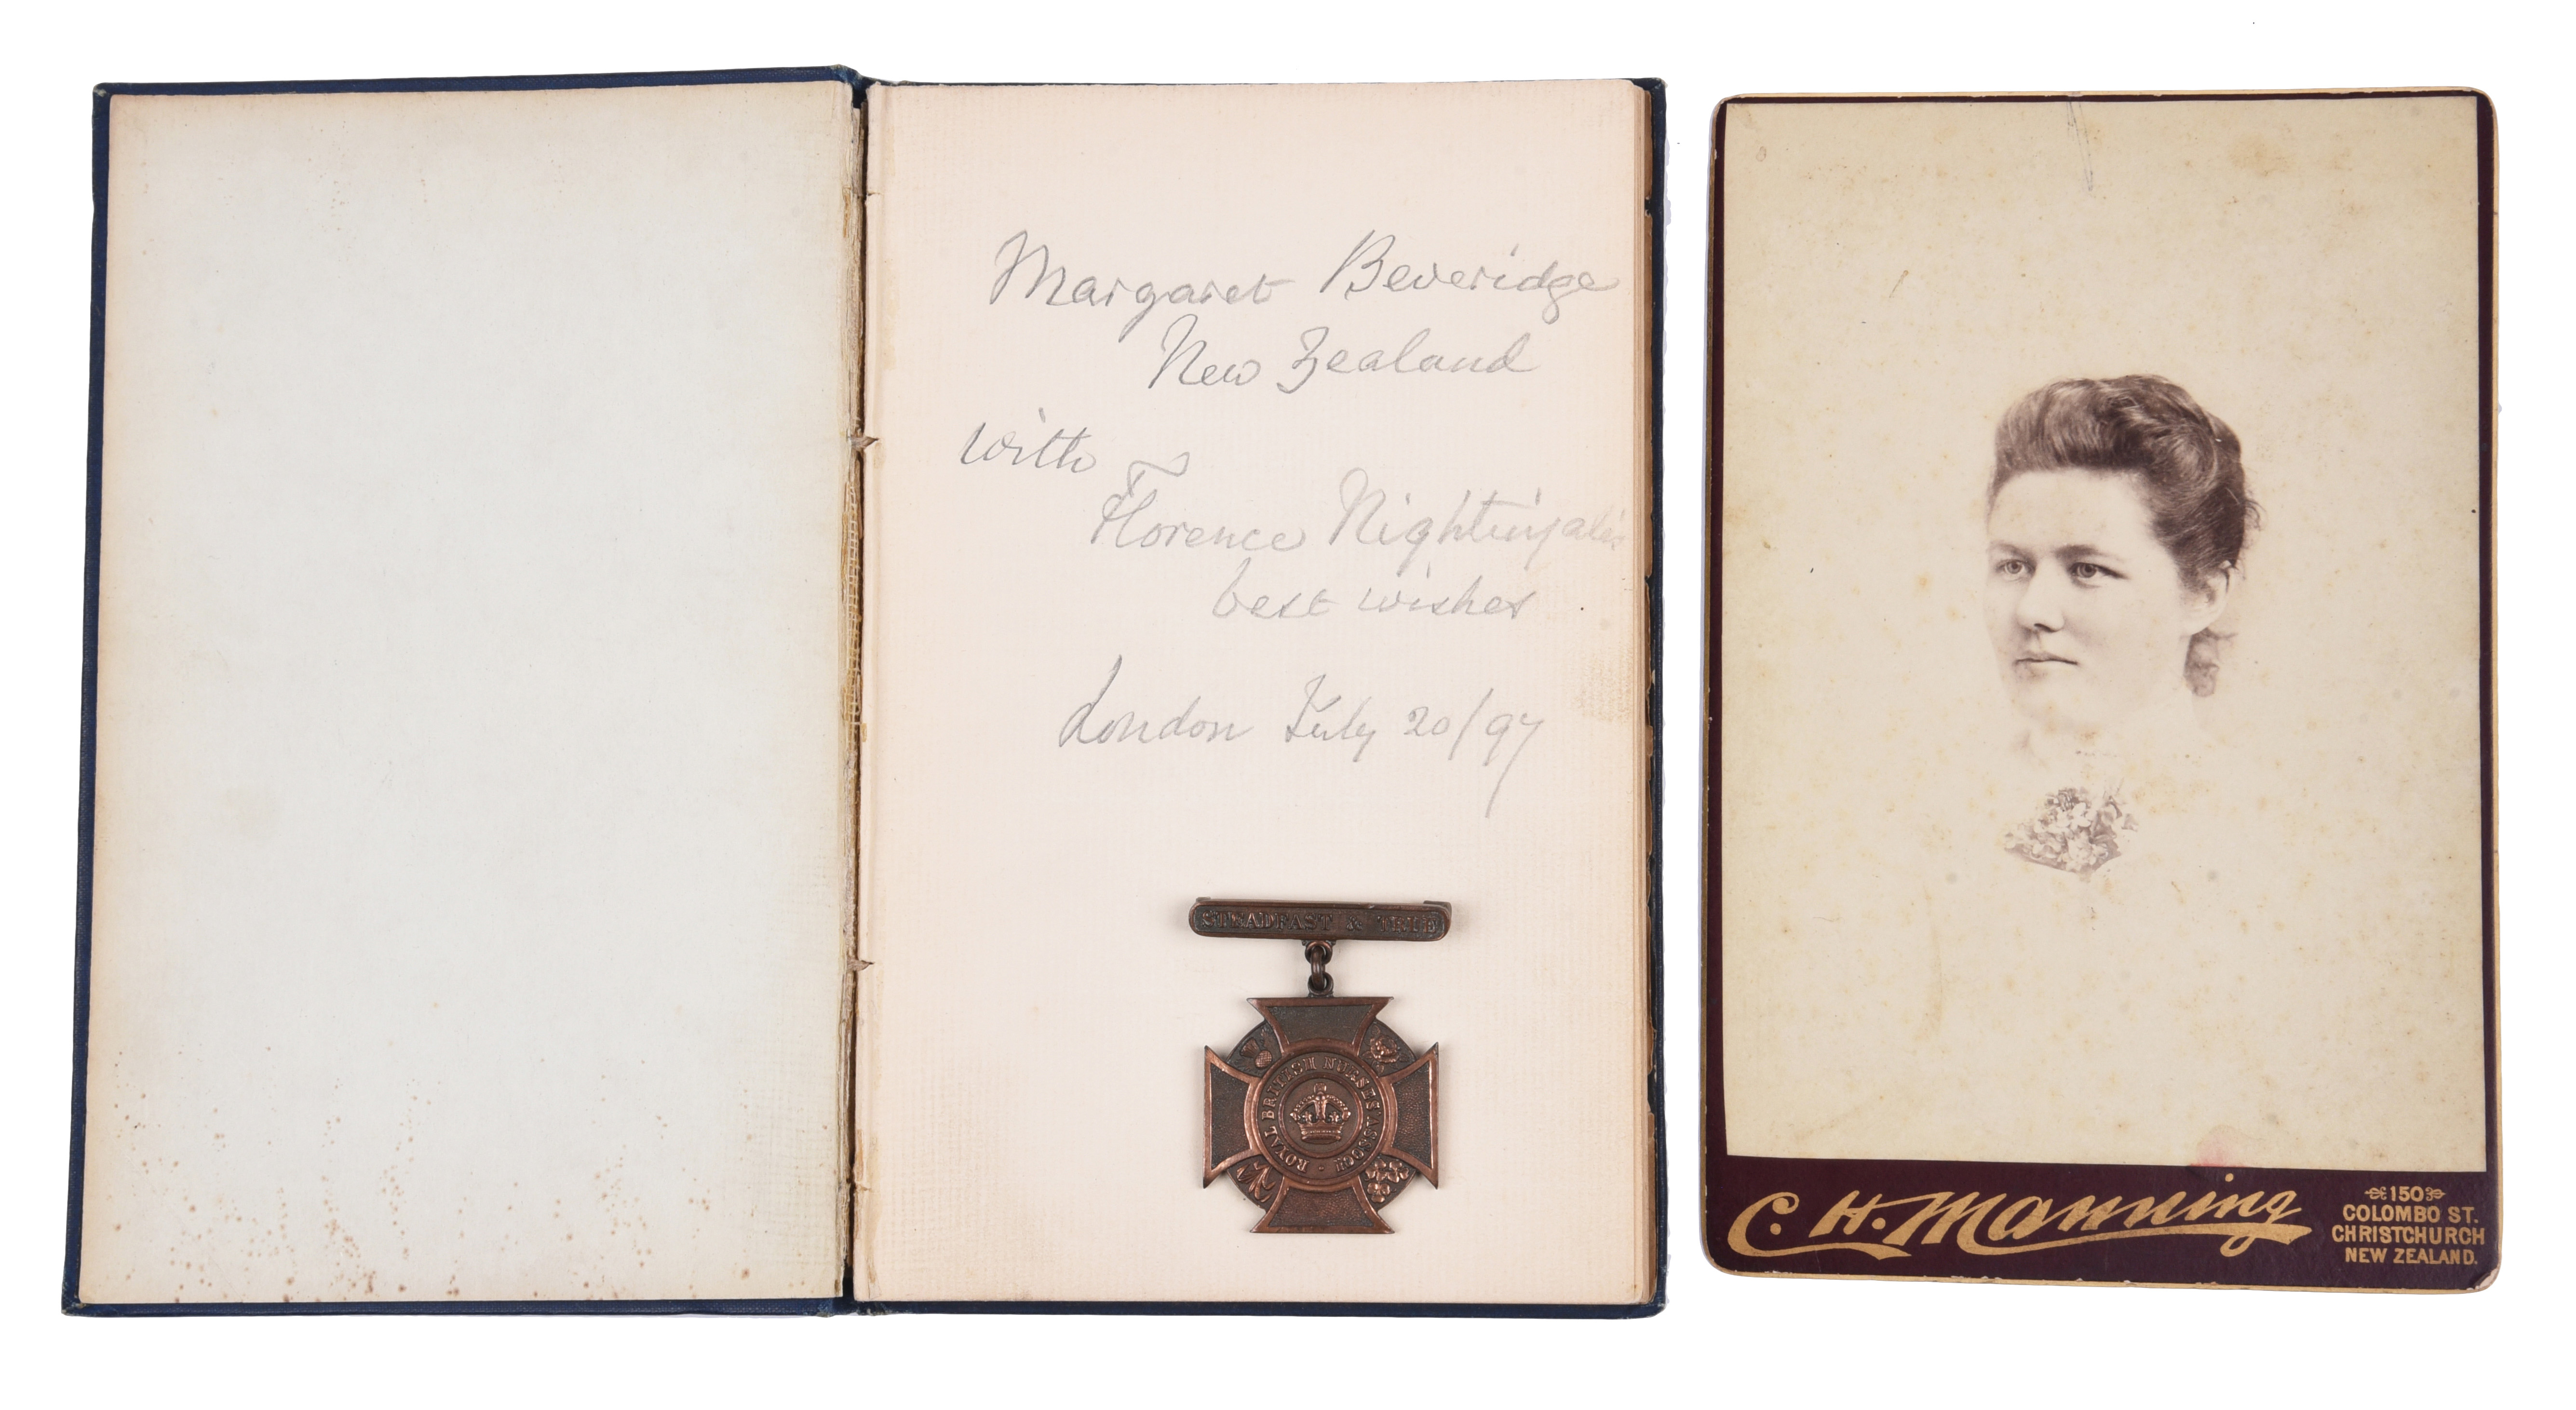 Margaret Beveridge
New Zealand
with
Florence Nightingale's
best wishes
London July 20/97
STEADFAST & TRUE
ROYAL BRITISH NURSES' ASSOCN
C. H. Manning
150
COLOMBO ST.
CHRISTCHURCH
NEW ZEALAND.